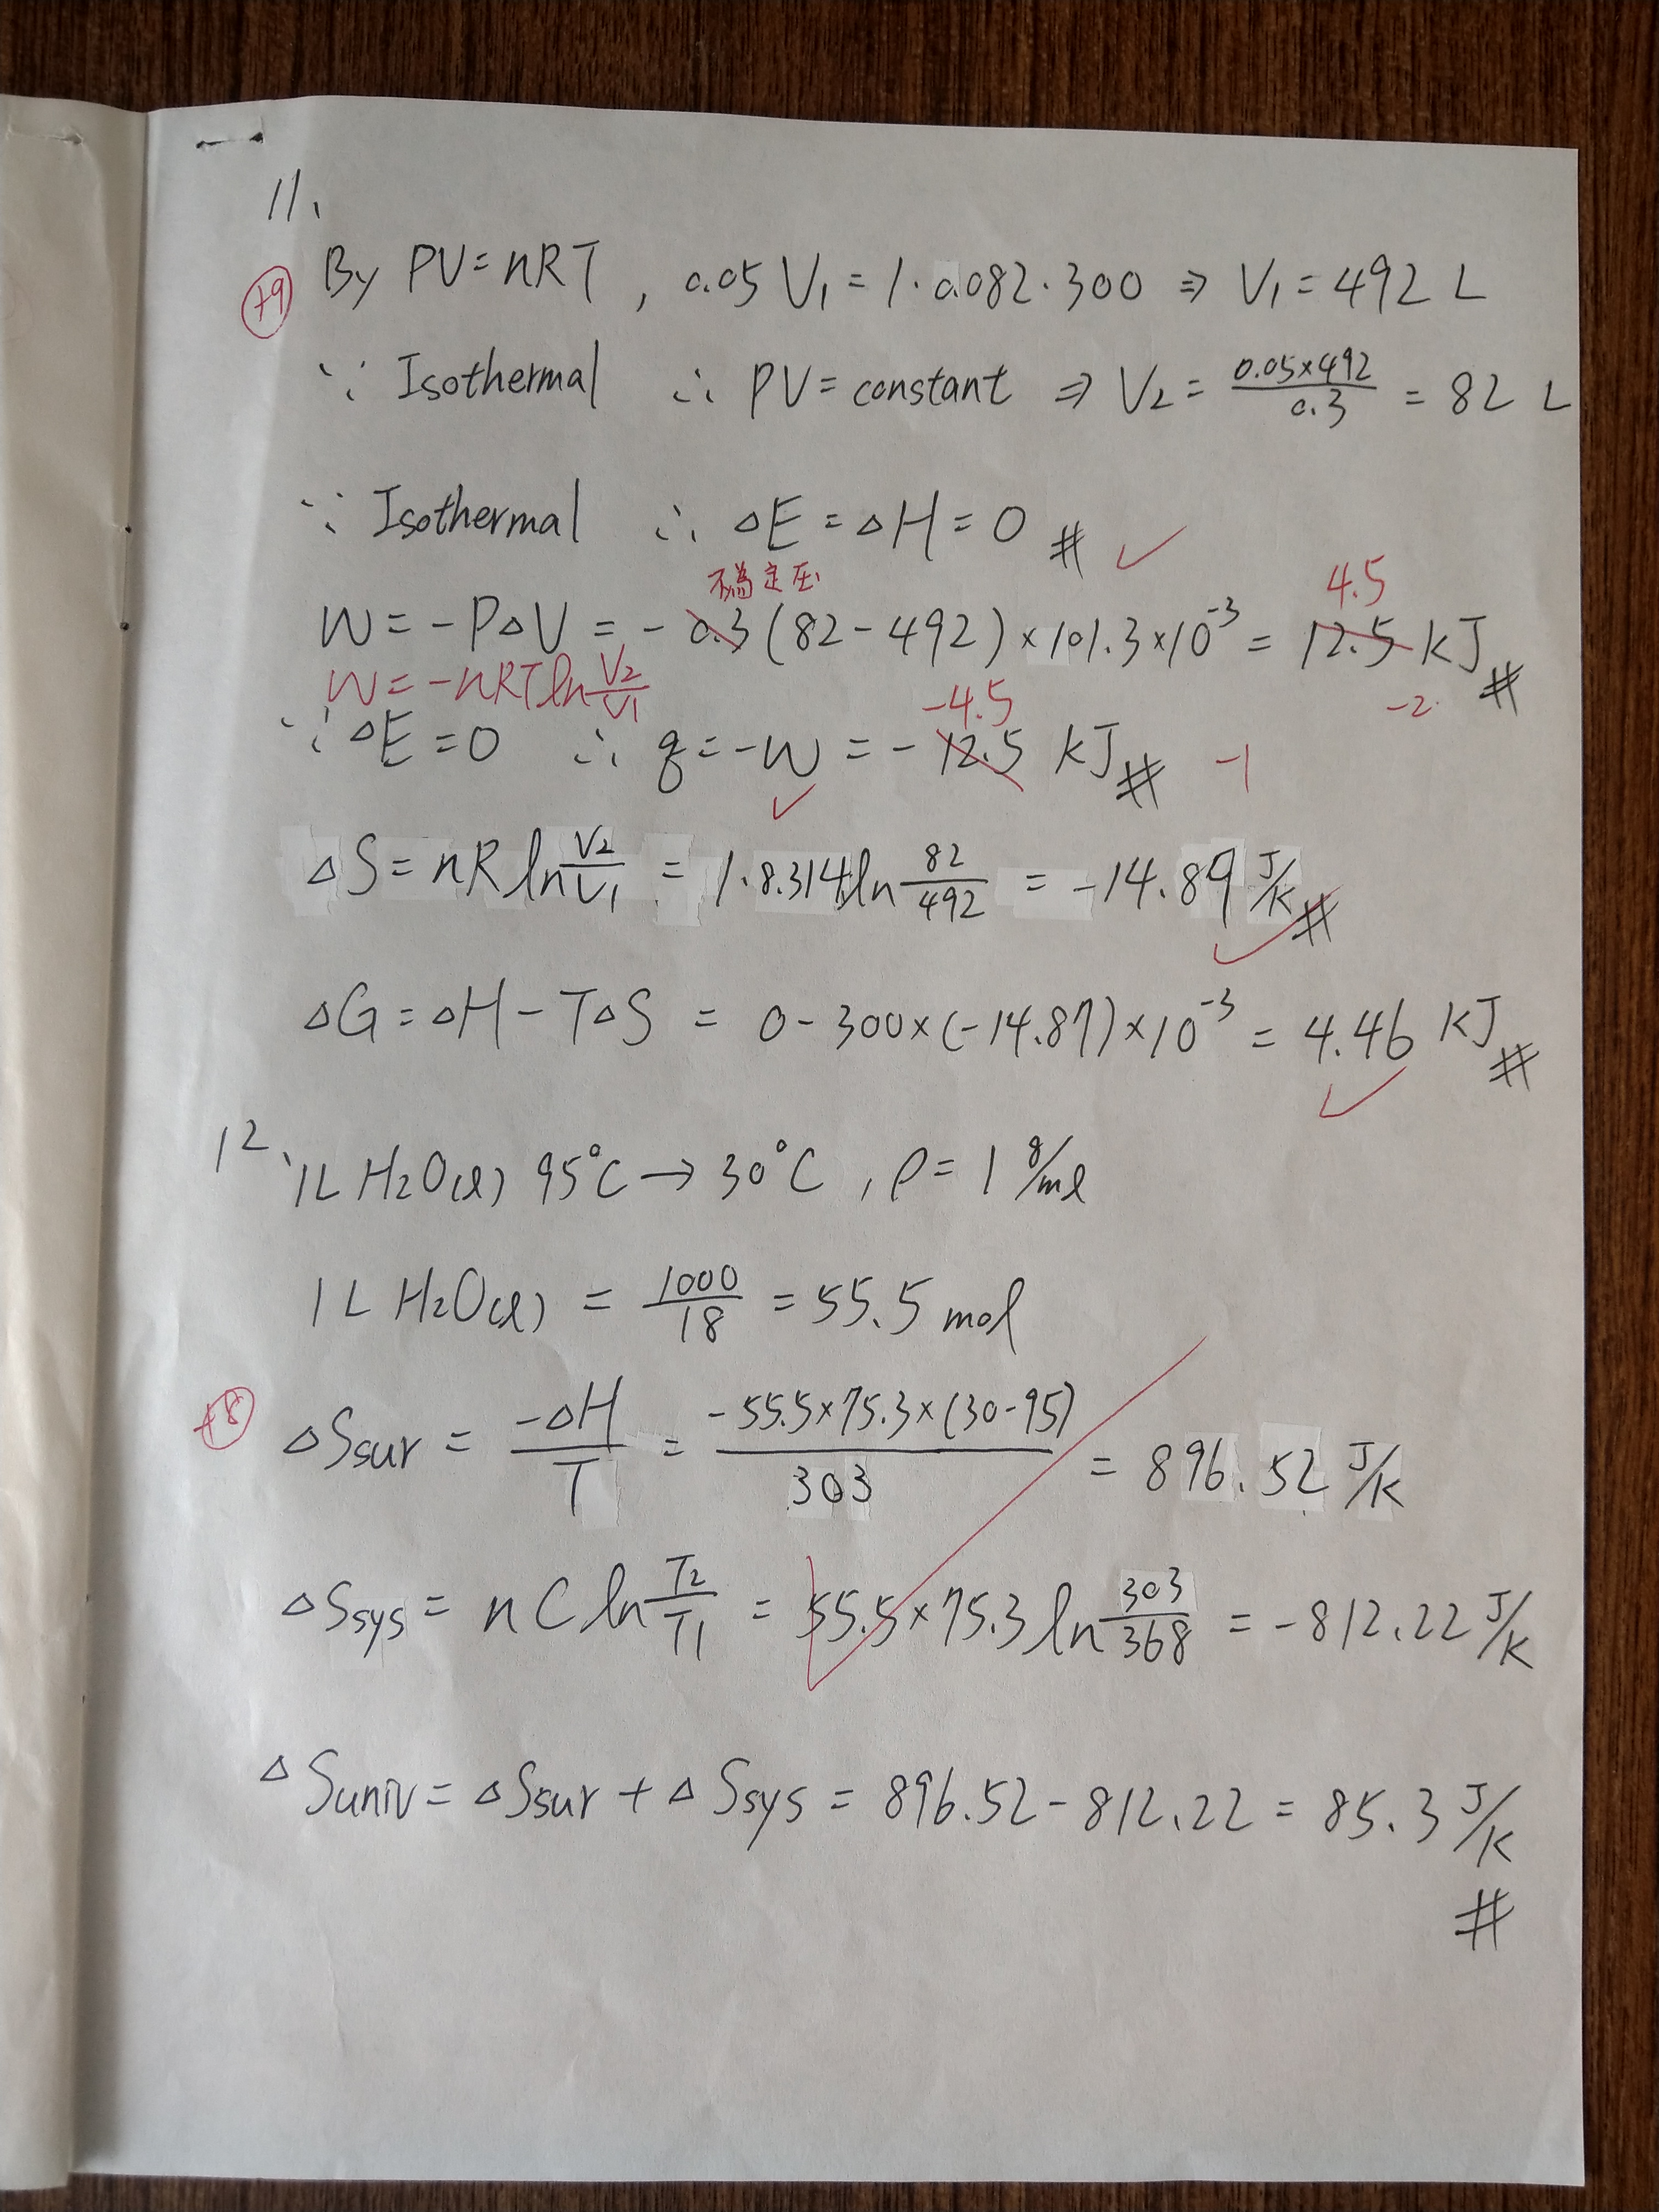 11、
+9
By PV=nRT , 0.05 V₁ = 1·0.082·300 ⇒ V₁ = 492 L
∵ Isothermal ∴ PV = constant ⇒ V₂ = 0.05×492/0.3 = 82 L
∵ Isothermal ∴ △E = △H = 0 # ✓
不為定壓 4.5
W = -P△V = -0.3(82-492)×101.3×10⁻³ = 12.5 kJ #
W = -nRT ln V₂/V₁ -4.5 -2
∵ △E = 0 ∴ q = -W = -12.5 kJ # -1
✓
△S = nR ln V₂/V₁ = 1·8.314 ln 82/492 = -14.89 J/K #
✓
△G = △H - T△S = 0 - 300×(-14.87)×10⁻³ = 4.46 KJ #
✓
12、 1L H₂O(l) 95°C → 30°C , ρ = 1 g/ml
1 L H₂O(l) = 1000/18 = 55.5 mol
+8
△Ssur = -△H/T = -55.5×75.3×(30-95)/303 = 896.52 J/K
△Ssys = nC ln T₂/T₁ = 55.5×75.3 ln 303/368 = -812.22 J/K
✓
△Suniv = △Ssur + △Ssys = 896.52 - 812.22 = 85.3 J/K
#